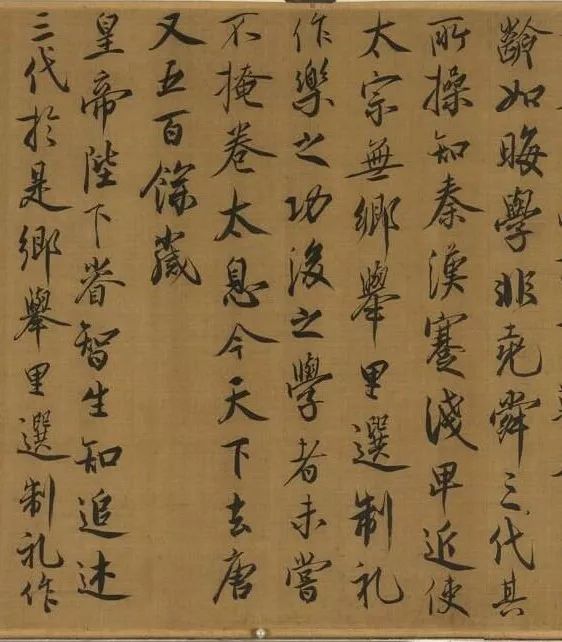 齡如晦學非堯舜三代其
所操知秦漢蹇淺卑近使
太宗無鄉舉里選制礼
作樂之功後之學者未嘗
不掩卷太息今天下去唐
又五百餘歲
皇帝陛下睿智生知追述
三代於是鄉舉里選制礼作